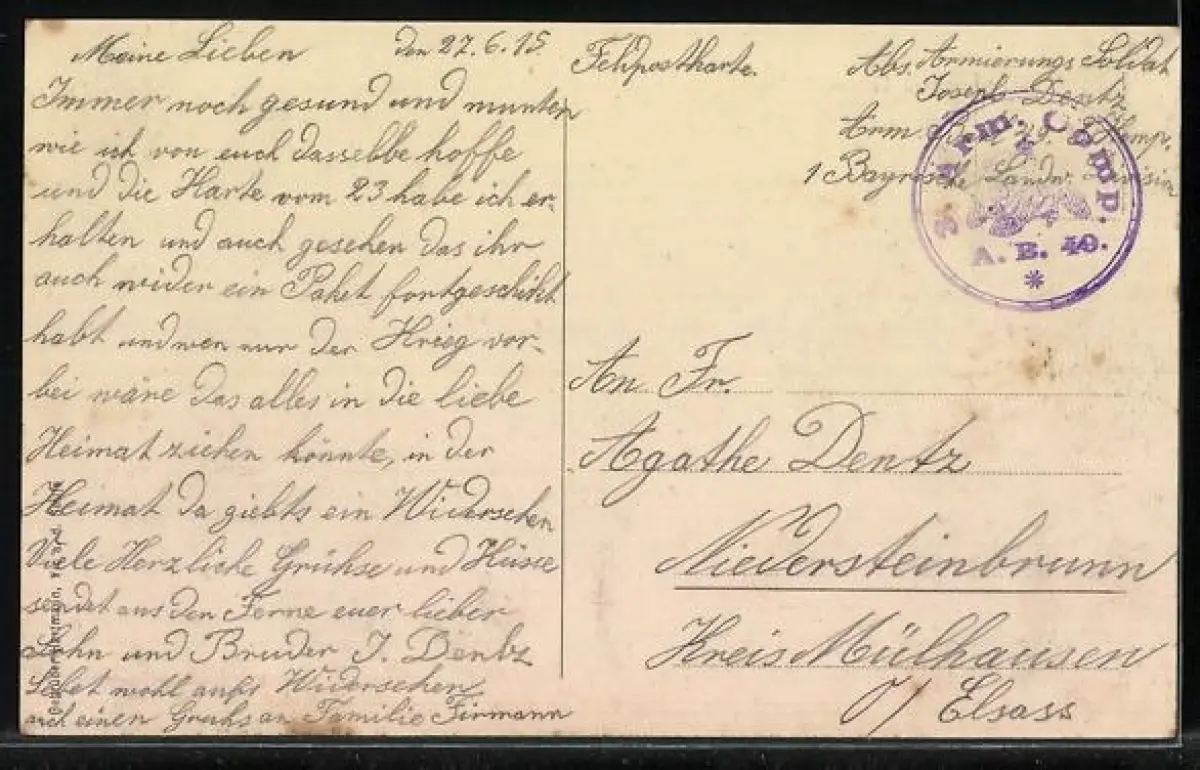 Meine Lieben den 27.6.15
Immer noch gesund und munter
wie ich von euch dasselbe hoffe
und die Karte vom 23 habe ich er-
halten und auch gesehen das ihr
auch wider ein Paket fortgeschickt
habt und wen nur der Krieg vor-
bei wäre das alles in die liebe
Heimat ziehen könnte, in der
Heimat da giebts ein Widersehen
Viele Herzliche Grühse und Küsse
sendet aus den Ferne euer lieber
Sohn und Bruder J. Dentz
Lebet wohl aufs Widersehen
auch einen Gruhs an Familie Firmann
Feldpostkarte.
Abs. Armierungs Soldat
Joseph Dentz
Arm. Komp.
1 Bayrische Landw. Division
3. Arm. Comp.
A. B. 40.
*
An Fr.
Agathe Dentz
Niedersteinbrunn
Kreis Mülhausen
O/ Elsass